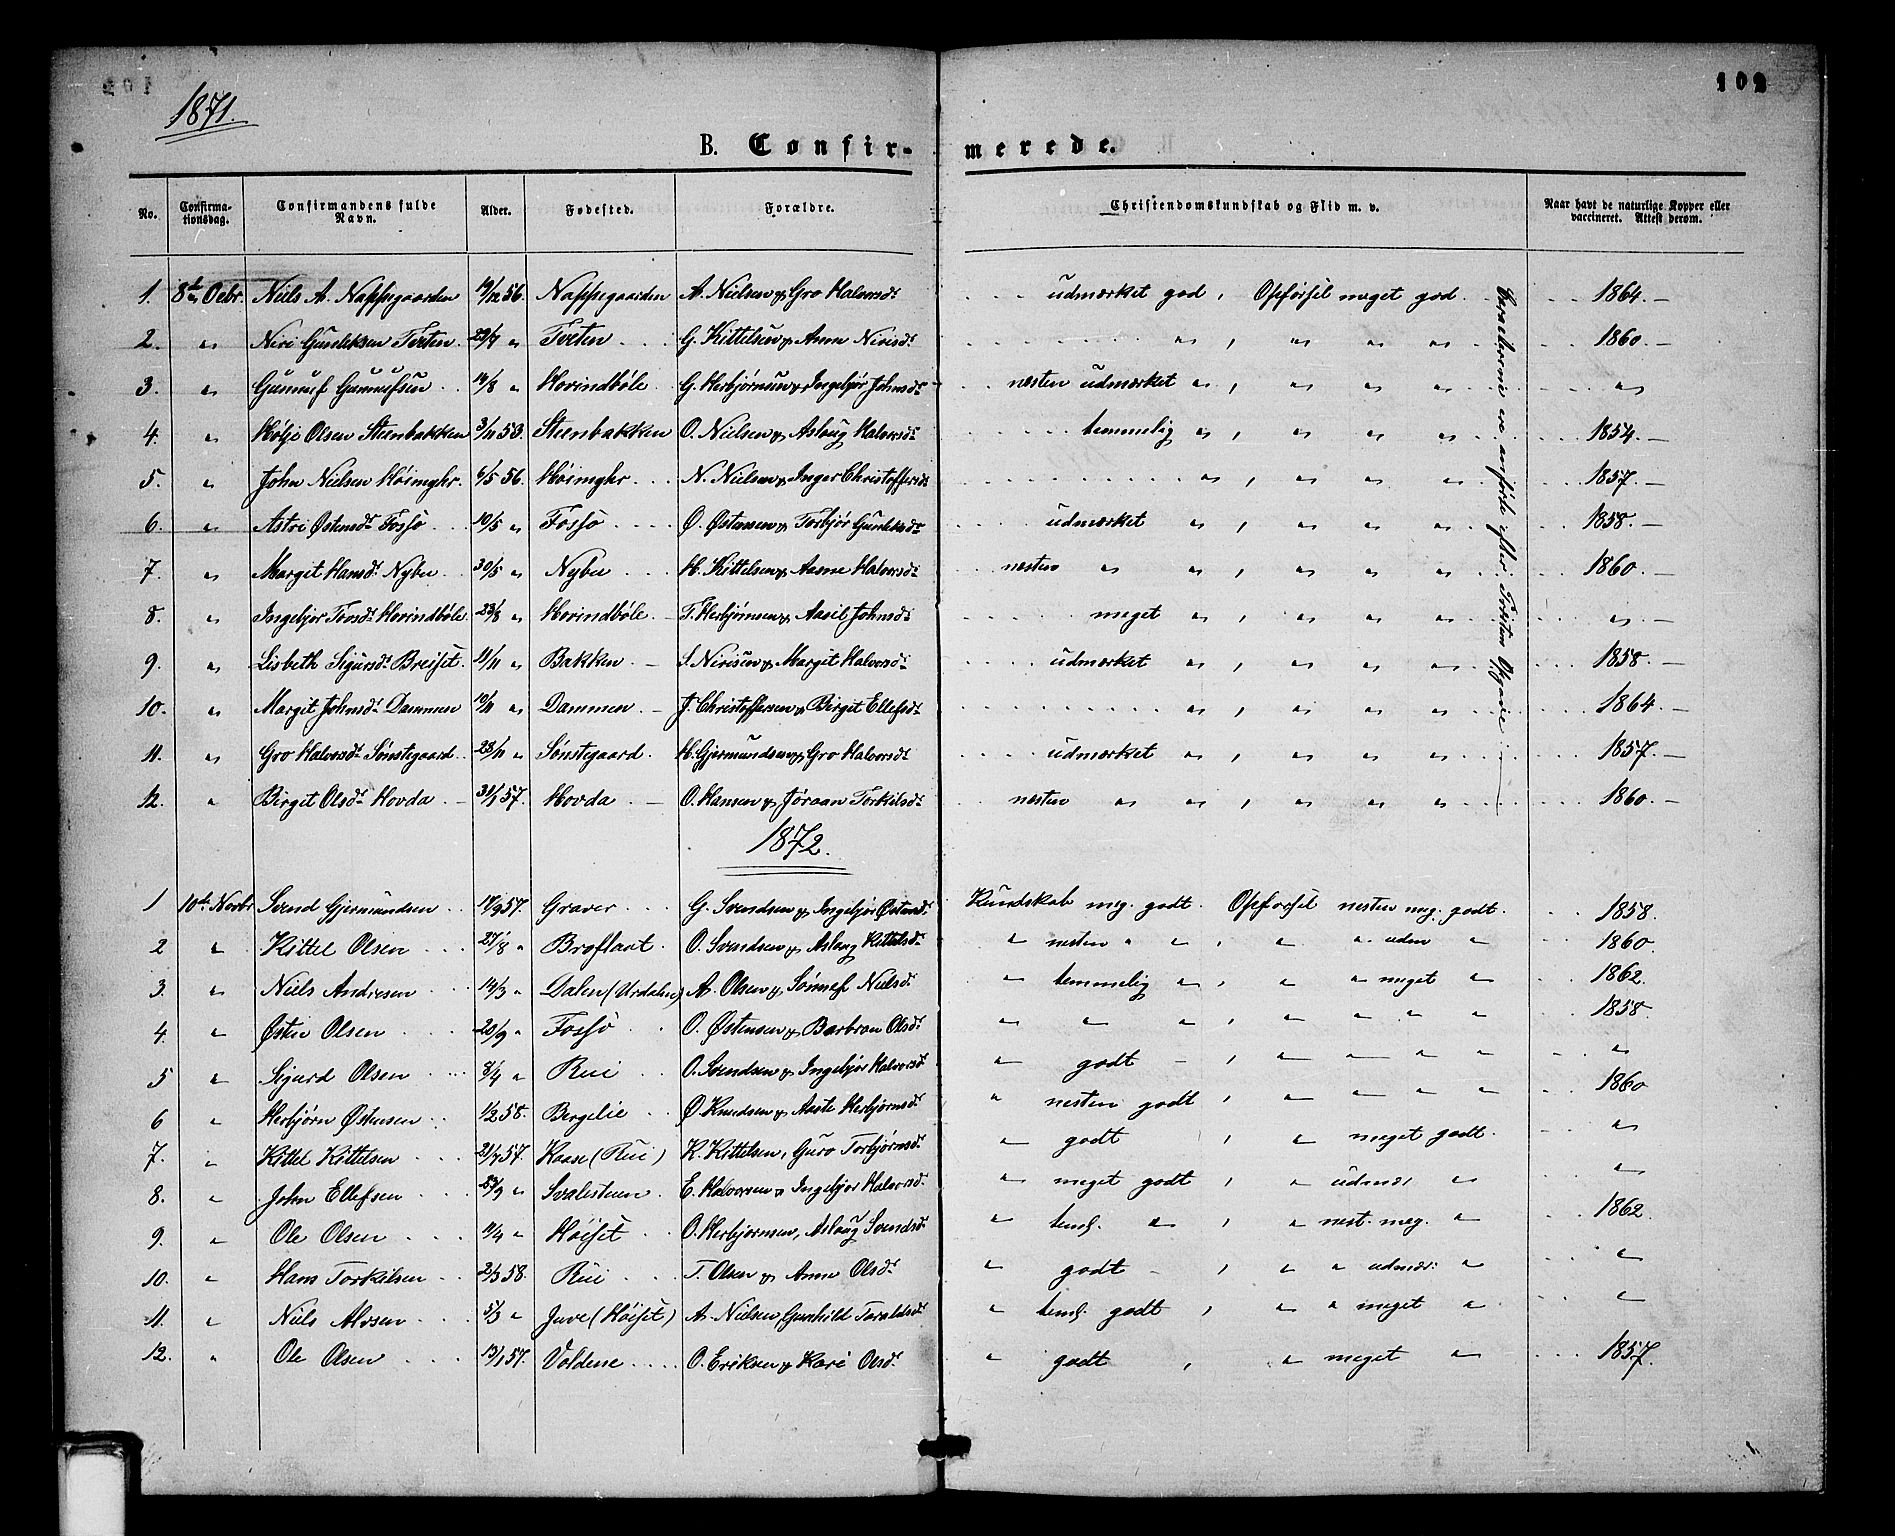 1871.
102
B. Confir-merede.
No. Confirmationsdag. Confirmandens fulde Navn. Alder. Fødested. Forældre. Christendomskundskab og Flid m. v. Naar havt de naturlige Kopper eller vaccineret. Attest derom.
1. 8de Octbr. Niels A. Nappegaarden 19/12 56. Nappegaarden A. Nielsen & Gro Halvorsdr udmærket god, Opførsel meget god. 1864.
2. " Niri Gunleksen Tveten 29/7 " Tveten G. Kittelsen & Anne Nirisdr " , " " " 1860.
3. " Gunnuf Gunnufsen 14/8 " Hovindbøle G. Herbjørnsen & Ingebjør Johnsdr nesten udmærket " , " " " "
4. " Høljе Olsen Steenbakken 3/11 53. Steenbakken O. Nielsen & Aslaug Halvorsdr temmelig " , " " " 1854.
5. " John Nielsen Høimyhr. 6/5 56. Høimyhr N. Nielsen & Inger Christoffersdr " , " " " 1857.
6. " Astri Østensdr Fossø 10/5 " Fossø Ø. Østensen & Torbjør Gunleksdr udmærket " , " " " 1858.
7. " Margit Hansdr Nybu 30/5 " Nybu H. Kittelsen & Aasne Halvorsdr nesten " " , " " " 1860.
8. " Ingebjør Tovsdr Hovindbøle 23/8 " Hovindbøle T. Herbjørnsen & Aasil Johnsdr meget " , " " " "
9. " Lisbeth Sigursdr Breiset 11/11 " Bakken S. Nirisen & Margit Halvorsdr udmærket " , " " " 1858.
10. " Margit Johnsdr Dammen 10/11 " Dammen J. Christoffersen & Birgit Ellefsdr " , " " " 1864.
11. " Gro Halvorsdr Sønstegaard 28/11 " Sønstegaard H. Gjermundsen & Gro Halvorsdr udmærket " , " " " 1857.
12. " Birgit Olsdr Hovda 31/1 57. Hovda O. Hansen & Jøraan Torkilsdr nesten " " , " " " 1860.
Caractererne ere anførte efter Tolvten Opgave
1872.
1 10de Novbr Svend Gjermundsen 17/9 57. Graver G. Svendsen & Ingebjør Østensdr Kundskab meg. godt. Opførsel nesten meg. godt. 1858.
2 " Kittel Olsen 27/8 " Broflaat O. Svendsen & Aslaug Kittelsdr " nesten " " , " " uden " 1860.
3. " Niels Andresen 14/3 " Dalen (Urdalen) A. Olsen & Sønnef Nielsdr " temmelig " , " " meget " 1862.
4. " Østen Olsen 20/9 " Fossø O. Østensen & Barbroe Olsdr " " " , " " " " 1858.
5 " Sigurd Olsen 3/4 " Rui O. Svendsen & Ingebjør Halvorsdr " godt , " " " " "
6 " Herbjørn Østensen 1/2 58. Bergelie Ø. Knudsen & Aaste Herbjørnsdr " nesten godt , " " " " 1860
7. " Kittel Kittelsen 21/7 57. Kaase (Rui) K. Kittelsen, Guro Torbjørnsdr " godt , " meget godt. "
8. " John Ellefsen 27/9 " Svalesteen E. Halvorsen & Ingebjør Halvorsdr " meget godt , " udmær " "
9. " Ole Olsen 14/4 " Høiset O. Herbjørnsen, Aslaug Svendsdr " teml. " , " nest. meg. " 1862.
10. " Hans Torkilsen 2/3 58. Rui T. Olsen & Anne Olsdr " godt , " " udmær: " "
11. " Niels Alvsen 5/3 " Juve (Høiset) A. Nielsen, Gunhild Taraldsdr " teml. godt , " " meget " "
12. " Ole Olsen 13/1 57. Voldene O. Eriksen & Kari Olsdr " godt , " meget " 1857.